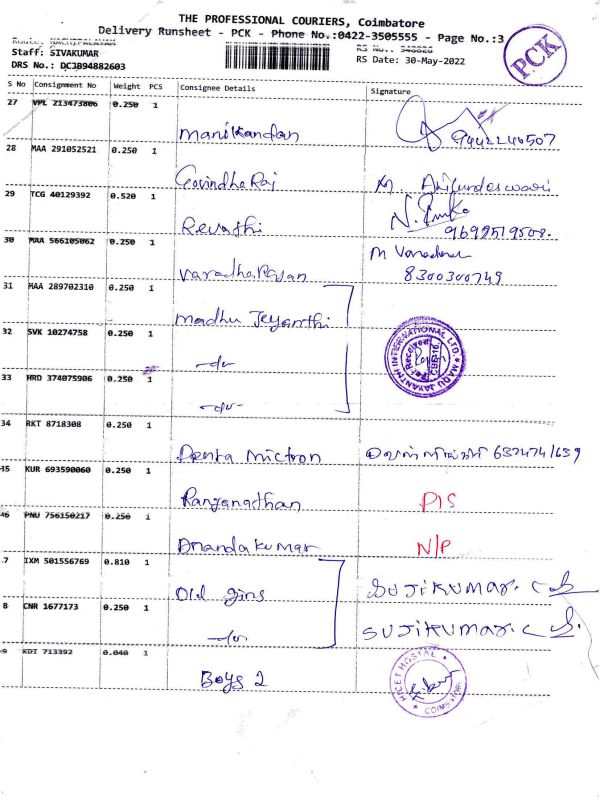 THE PROFESSIONAL COURIERS, Coimbatore
Delivery Runsheet - PCK - Phone No.:0422-3505555 - Page No.:3
Staff: SIVAKUMAR
RS Date: 30-May-2022
DRS No.: DCJB94882603
PCK
S No Consignment No Weight PCS Consignee Details Signature
27 VPL 213473806 0.250 1
Manikandan 9442246507
28 MAA 291052521 0.250 1
Govindha Raj
29 TCG 40129392 0.520 1
Revathi
30 MAA 566105062 0.250 1
Varadha Rajan 8300300749
31 MAA 289702310 0.250 1
Madhu Jeyanthi
MADU JAYANTHI INTERNATIONAL LTD.
32 SVK 10274758 0.250 1
-do-
33 HRD 374075906 0.250 1
-do-
34 RKT 8718308 0.250 1
Penta Mictron
35 KUR 693590060 0.250 1
Ranganadhan P/S
46 PNU 756150217 0.250 1
Anandakumar N/P
7 IXM 501556769 0.810 1
Old gins SUJIKUMAR. C
8 CNR 1677173 0.250 1
-do- SUJIKUMAR. C
9 KDI 713392 0.040 1
Boys 2
HICET HOSTAL
COIMBATORE